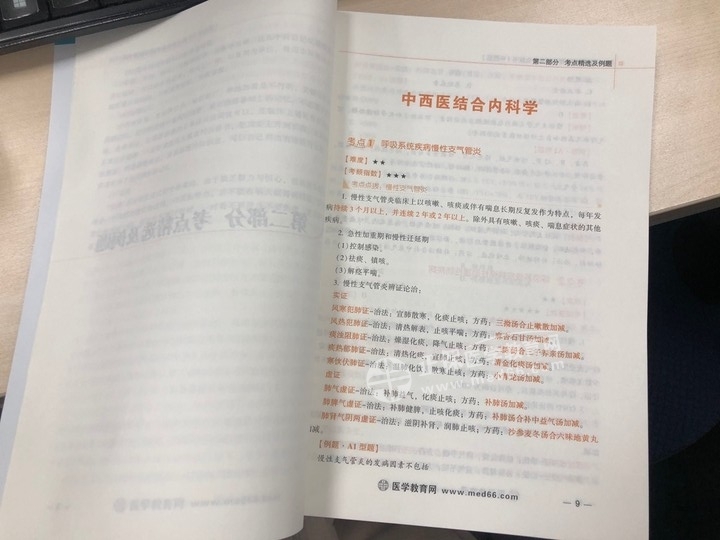 第二部分 考点精选及例题
中西医结合内科学
考点1 呼吸系统疾病慢性支气管炎
【难度】★★
【考频指数】★★★
考点点拨：慢性支气管炎
1. 慢性支气管炎临床上以咳嗽、咳痰或伴有喘息长期反复发作为特点，每年发
病持续3个月以上，并连续2年或2年以上，除外具有咳嗽、咳痰、喘息症状的其他
疾病。
2. 急性加重期和慢性迁延期
(1)控制感染。
(2)祛痰、镇咳。
(3)解痉平喘。
3. 慢性支气管炎辨证论治：
实证
风寒犯肺证-治法：宣肺散寒，化痰止咳；方药：三拗汤合止嗽散加减。
风热犯肺证-治法：清热解表，止咳平喘；方药：麻杏石甘汤加减。
痰浊阻肺证-治法：燥湿化痰，降气止咳；方药：二陈汤合三子养亲汤加减。
痰热郁肺证-治法：清热化痰，宣肺止咳；方药：清金化痰汤加减。
寒饮伏肺证-治法：温肺化饮，散寒止咳；方药：小青龙汤加减。
虚证
肺气虚证-治法：补肺益气，化痰止咳；方药：补肺汤加减。
肺脾气虚证-治法：补肺健脾，止咳化痰；方药：补肺汤合补中益气汤加减。
肺肾气阴两虚证-治法：滋阴补肾，润肺止咳；方药：沙参麦冬汤合六味地黄丸
加减。
【例题·A1型题】
慢性支气管炎的发病因素不包括
医学教育网 www.med66.com
— 9 —
第二部分 考点精选及例题